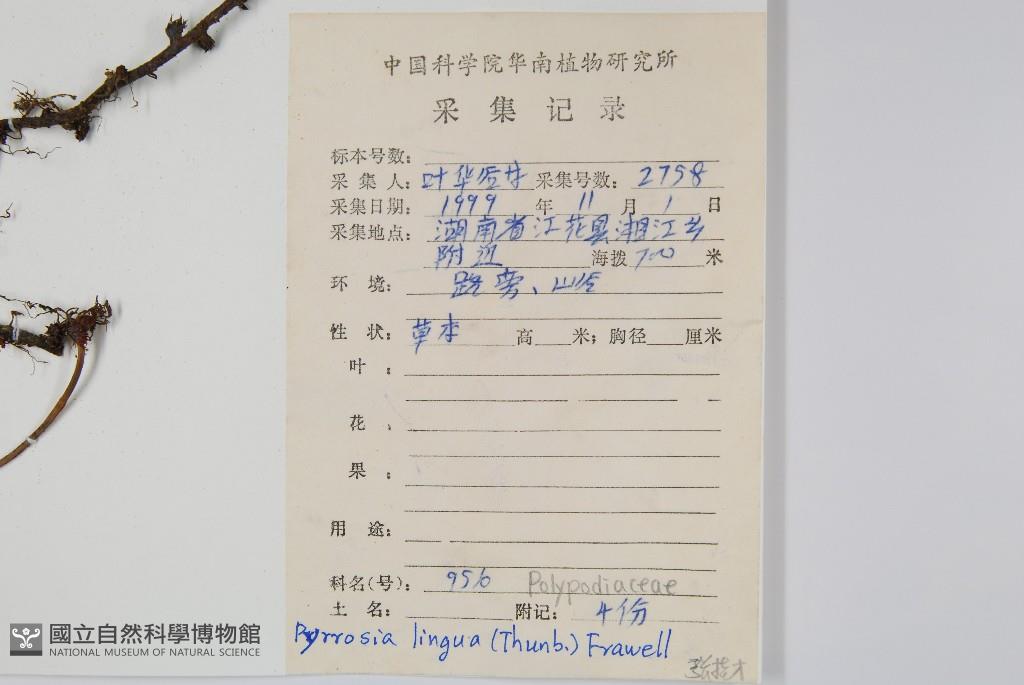 中国科学院华南植物研究所
采集记录
标本号数:
采集人: 叶华谷 采集号数: 2758
采集日期: 1999 年 11 月 1 日
采集地点: 湖南省江花县湘江乡
附近 海拨 700 米
环境: 路旁、山径
性状: 草本 高 米; 胸径 厘米
叶:
花:
果:
用途:
科名(号): 956 Polypodiaceae
土名: 附记: 4份
Pyrrosia lingua (Thunb.) Frawell
國立自然科學博物館
NATIONAL MUSEUM OF NATURAL SCIENCE